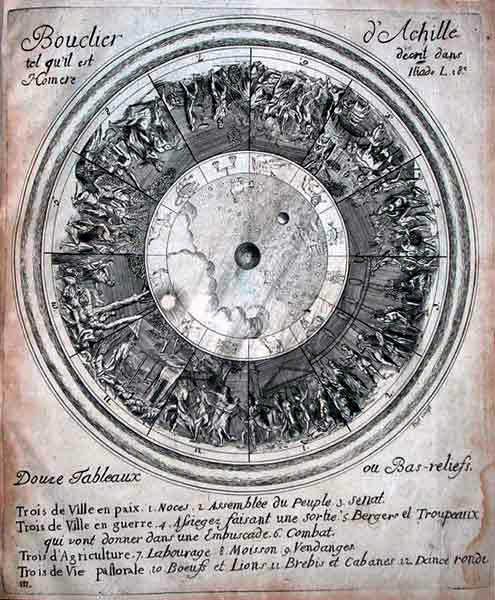 Bouclier d'Achille
tel qu'il est décrit dans
Homere Iliade L. 18e
Douze Tableaux ou Bas-reliefs.
Trois de Ville en paix. 1. Noces. 2 Assemblée du Peuple. 3. Senat.
Trois de Ville en guerre. 4. Assiegez faisant une sortie. 5. Bergers et Troupeaux
qui vont donner dans une Embuscade. 6. Combat.
Trois d'Agriculture. 7. Labourage 8 Moisson 9. Vendanges
Trois de Vie pastorale 10 Boeufs et Lions 11 Brebis et Cabanes 12. Dance ronde